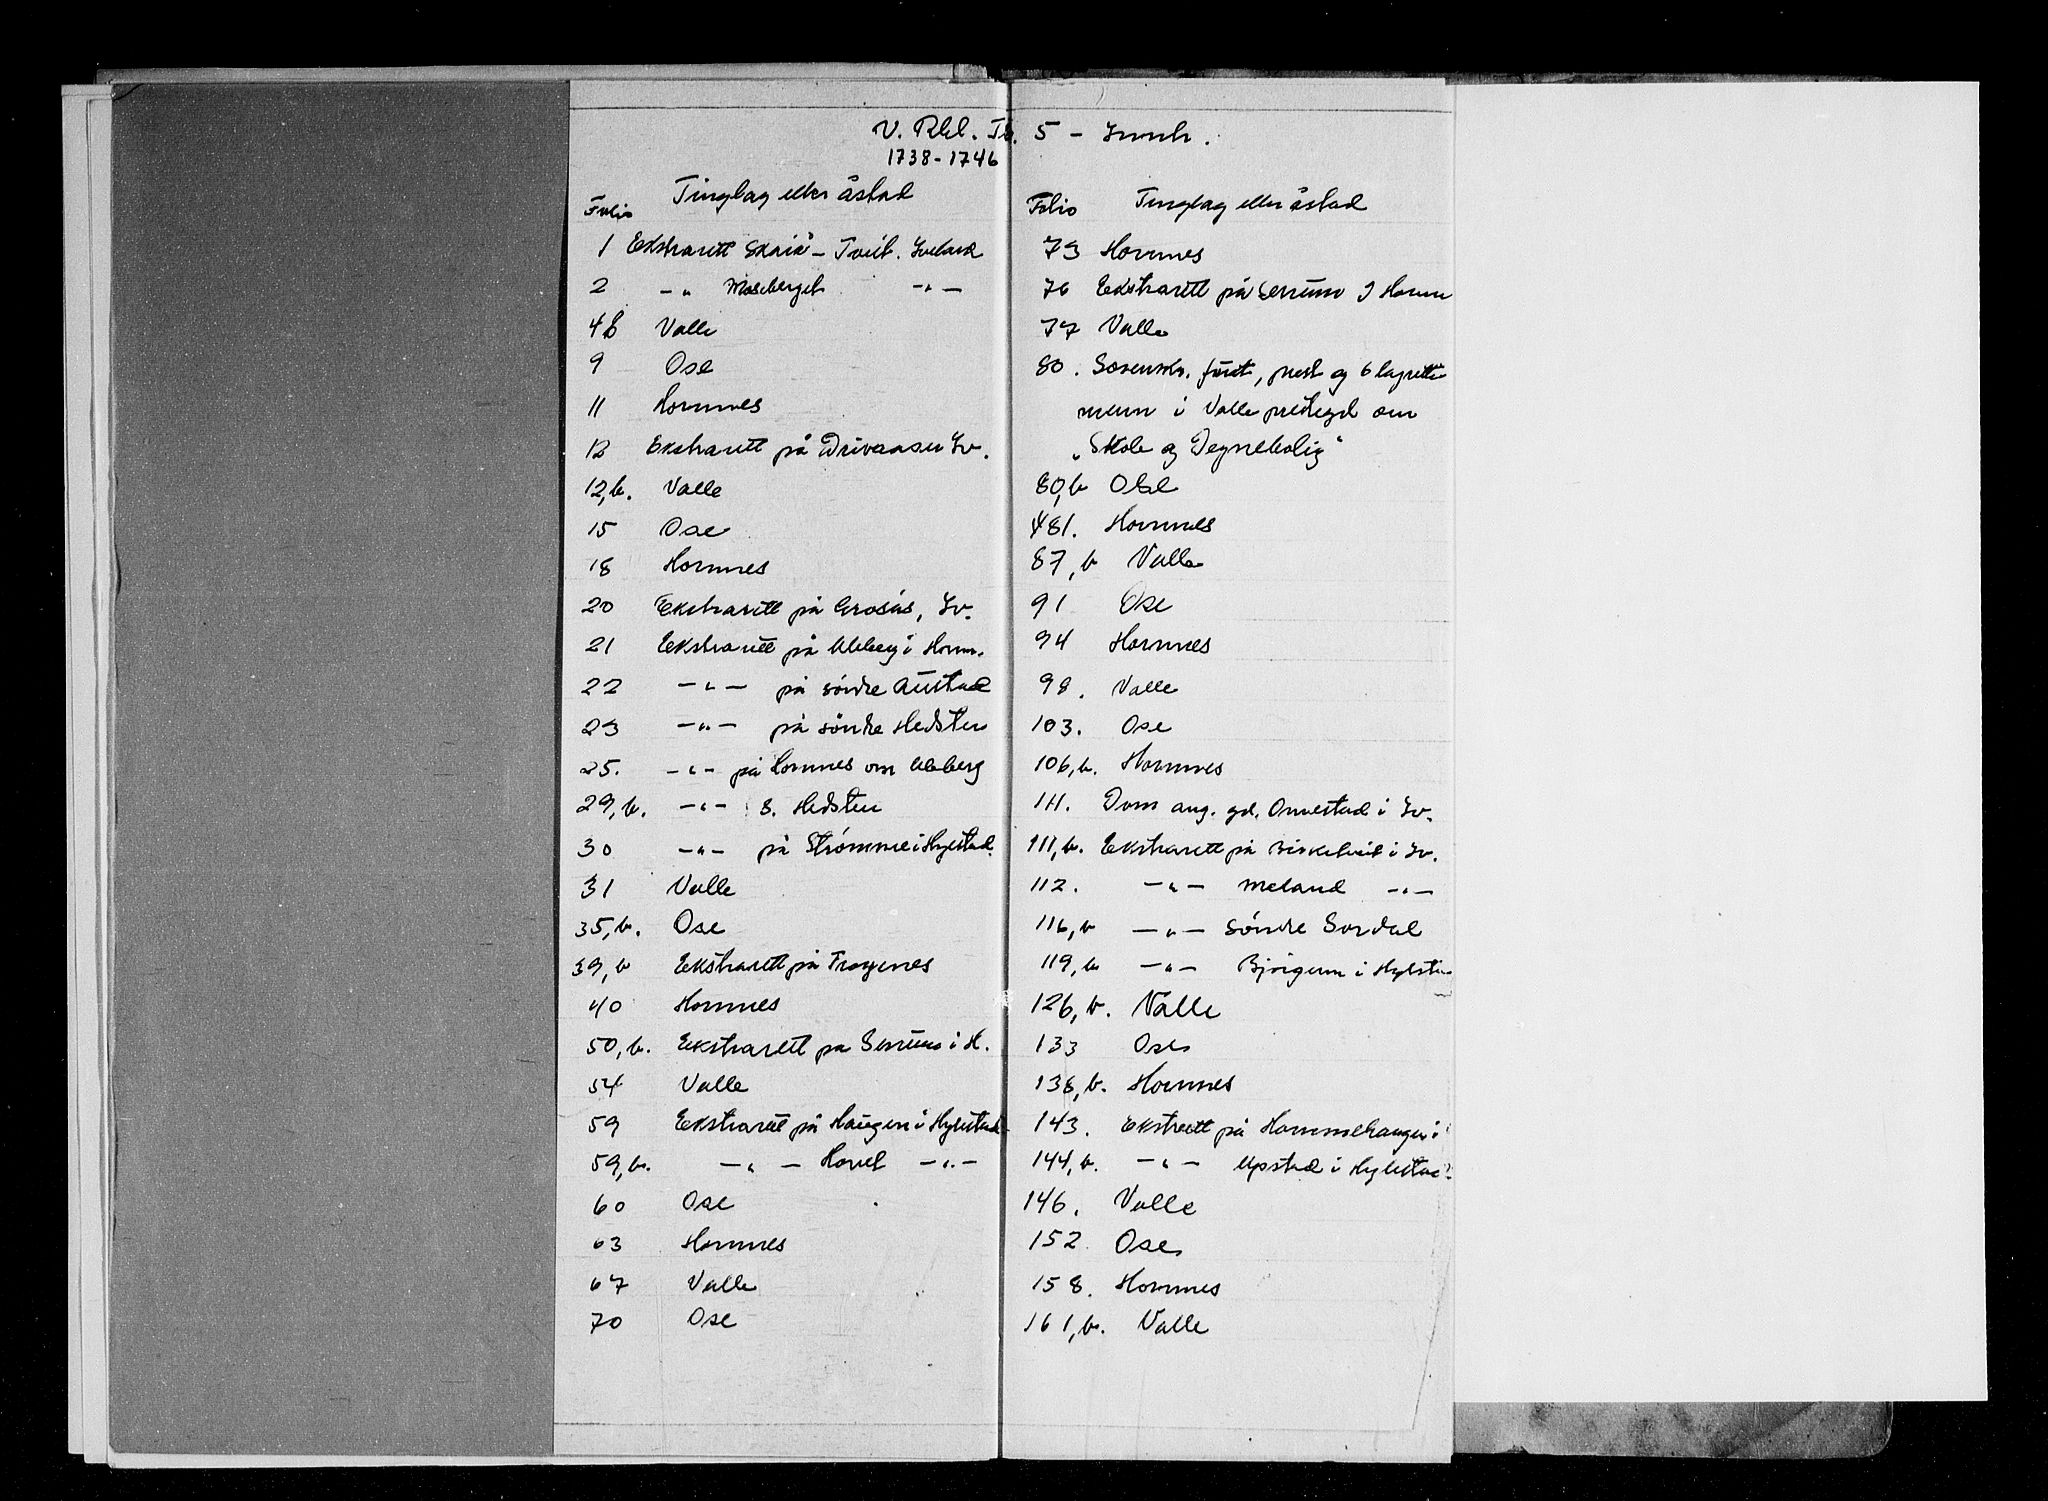 V. Rbl. Tb. 5 - Innh.
1738-1746
Folio Tinglag eller åstad
1 Ekstrarett Skaiå - Tveit. Iveland
2 -"- Moseberget -"-
4b Valle
9 Ose
11 Hornnes
12 Ekstrarett på Drivaasen Iv.
12,b. Valle
15 Ose
18 Hornnes
20 Ekstrarett på Grosås, Iv.
21 Ekstrarett på Uleberg i Hornn.
22 -"- på söndre Austad
23 -"- på söndre Hedsten
25. -"- på Hornnes om Uleberg
29,b. -"- S. Hedsten
30 -"- på Strömme i Hylestad
31 Valle
35,b. Ose
39,b Ekstrarett på Frøyenes
40 Hornnes
50,b. Ekstrarett på Senum i H.
54 Valle
59 Ekstrarett på Haugen i Hylestad
59,b. -"- Hovet -"-
60 Ose
63 Hornnes
67 Valle
70 Ose
Folio Tinglag eller åstad
73 Hornnes
76 Ekstrarett på Senum i Hornn
77 Valle
80. Sorenskr. fout, prest og 6 lagrettes
menn i Valle prestegd om
"Skole og Degnebolig"
80,b Ose
81. Hornnes
87,b Valle
91 Ose
94 Hornnes
98. Valle
103. Ose
106,b. Hornnes
111. Dom ang. gd. Omestad i Iv.
111,b. Ekstrarett på Birketveit i Iv.
112. -"- Meland -"-
116,b -"- Söndre Sordal
119,b -"- Bjørgum i Hylesta
126,b. Valle
133 Ose
138,b. Hornnes
143. Ekstrett på Hommehaugen i
144,b. -"- Upstad i Hylestad
146. Valle
152 Ose
158. Hornnes
161,b. Valle